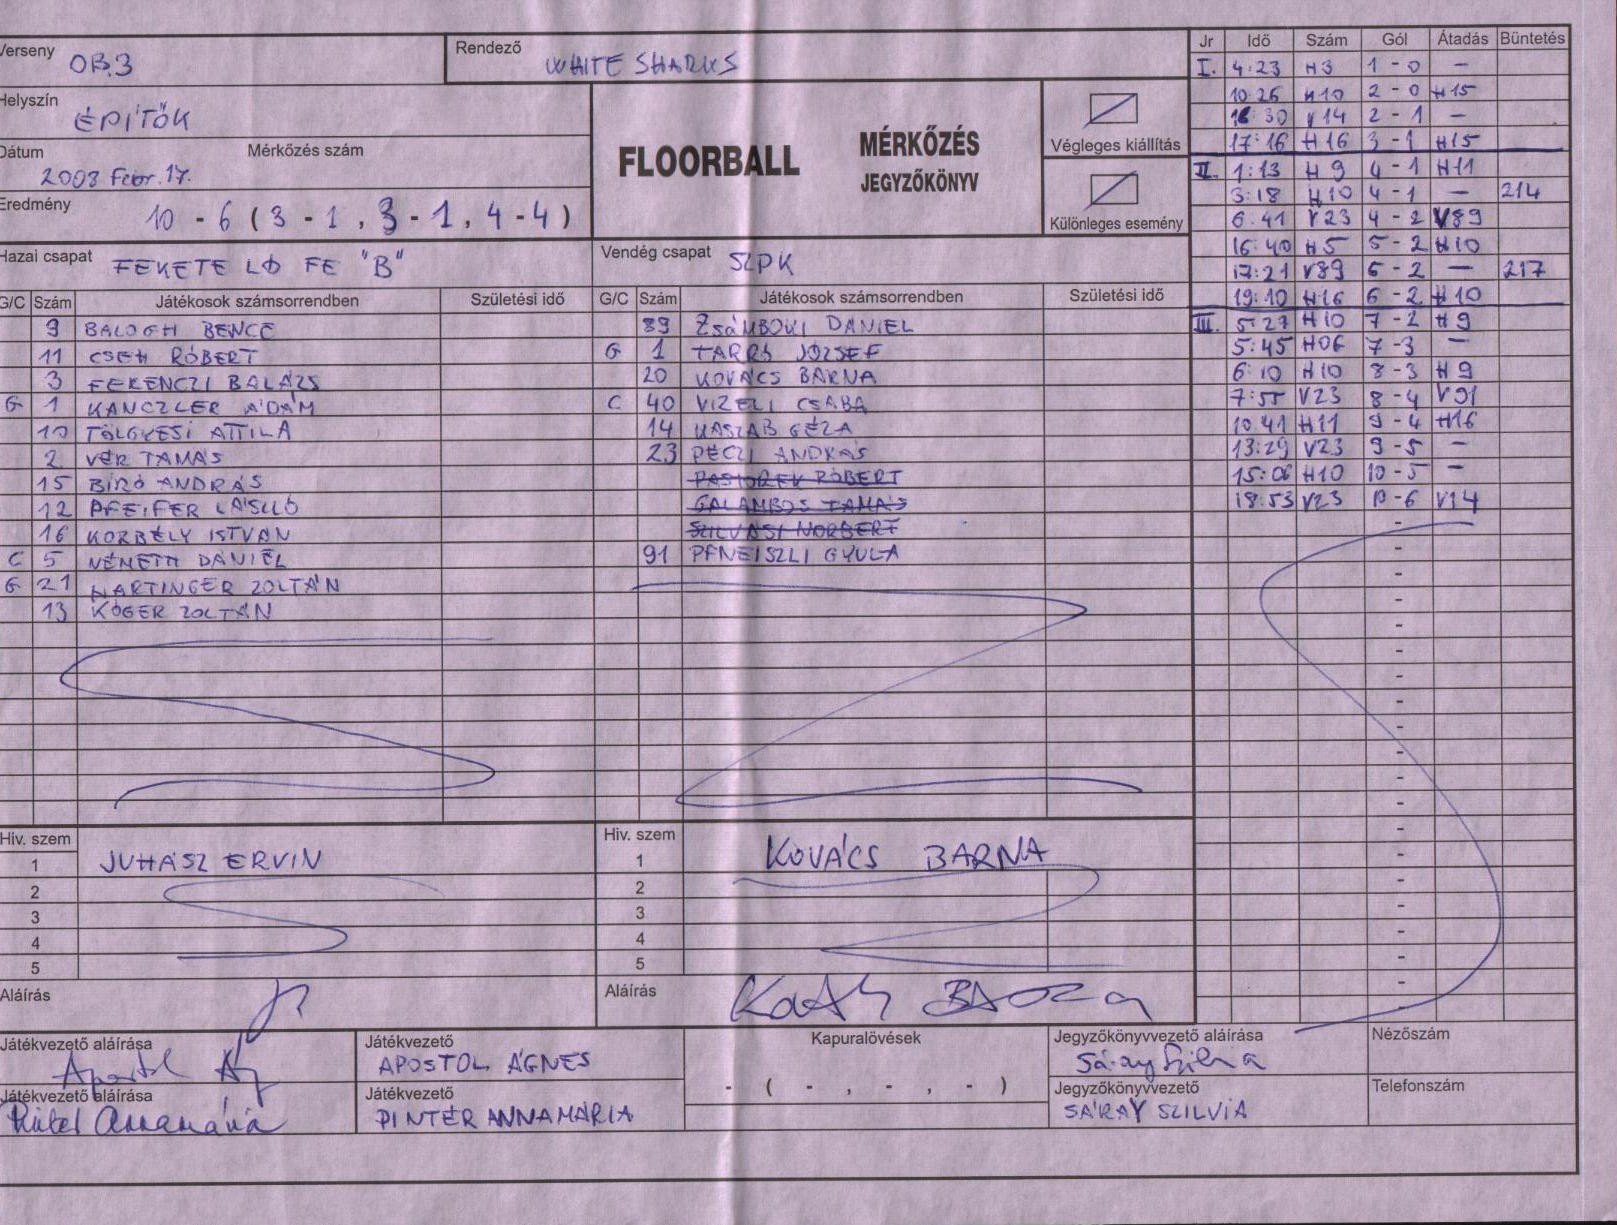 Verseny OB.3
Rendező WHITE SHARKS
Helyszín ÉPÍTŐK
Dátum 2008 Febr. 17.
Mérkőzés szám
Eredmény 10 - 6 ( 3 - 1 , 3 - 1 , 4 - 4 )
FLOORBALL
MÉRKŐZÉS
JEGYZŐKÖNYV
Végleges kiállítás
Különleges esemény
Hazai csapat FEKETE LÓ FE "B"
Vendég csapat SZPK
G/C Szám Játékosok számsorrendben Születési idő
9 BALOGH BENCE
11 CSEH RÓBERT
3 FERENCZI BALÁZS
G 1 KANCZLER ÁDÁM
10 TÖLGYESI ATTILA
2 VÉR TAMÁS
15 BÍRÓ ANDRÁS
12 PFEIFER LÁSZLÓ
16 KORBÉLY ISTVÁN
C 5 NÉMETH DÁNIEL
G 21 HARTINGER ZOLTÁN
13 KÓGER ZOLTÁN
G/C Szám Játékosok számsorrendben Születési idő
89 ZSÁMBOKI DÁNIEL
G 1 TARRÓ JÓZSEF
20 KOVÁCS BARNA
C 40 VIZELI CSABA
14 KASZAB GÉZA
23 PÉCZI ANDRÁS
PASTOREK RÓBERT
GALAMBOS TAMÁS
SZILVÁSI NORBERT
91 PFNEISZLI GYULA
Jr Idő Szám Gól Átadás Büntetés
I. 4:23 H3 1 - 0 –
10:26 H10 2 - 0 H15
16:30 V14 2 - 1 –
17:16 H16 3 - 1 H15
II. 1:13 H9 4 - 1 H11
3:18 H10 4 - 1 – 214
6:41 V23 4 - 2 V89
16:40 H5 5 - 2 H10
17:21 V89 5 - 2 – 217
19:10 H16 6 - 2 H10
III. 5:27 H10 7 - 2 H9
5:45 H06 7 - 3 –
6:10 H10 8 - 3 H9
7:55 V23 8 - 4 V91
10:41 H11 9 - 4 H16
13:29 V23 9 - 5 –
15:06 H10 10 - 5 –
18:53 V23 10 - 6 V14
Hiv. szem
1 JUHÁSZ ERVIN
2
3
4
5
Aláírás
Hiv. szem
1 KOVÁCS BARNA
2
3
4
5
Aláírás
Játékvezető aláírása
Játékvezető APOSTOL ÁGNES
Játékvezető aláírása
Játékvezető PINTÉR ANNAMÁRIA
Kapuralövések
- ( - , - , - )
Jegyzőkönyvvezető aláírása
Jegyzőkönyvvezető SÁRAY SZILVIA
Nézőszám
Telefonszám